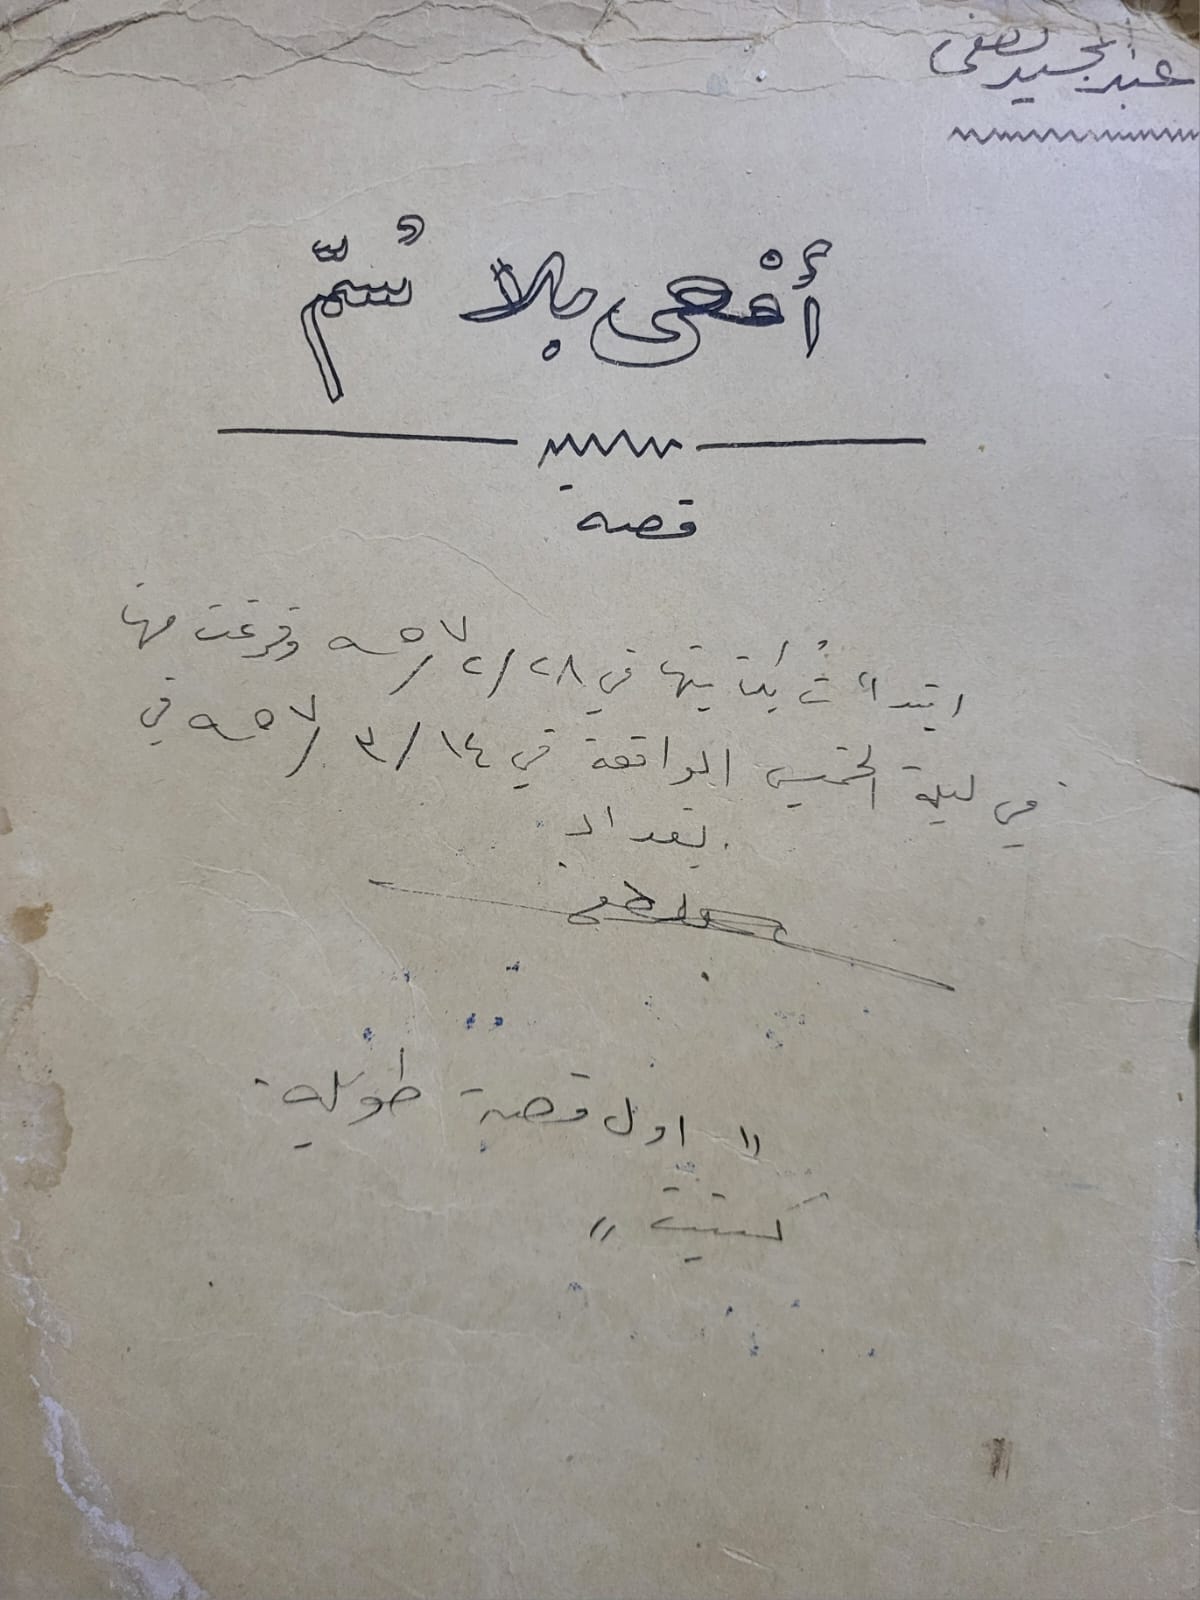 عبدالمجيد لطفي
أفعى بلا سُمّ
قصة
ابتدأتُ بكتابتها في ٢٨/٢/٩٥٧ وفرغت منها
في ليلة الخميس الواقعة في ١٤/٣/٩٥٧ في
بغداد
"اول قصة طويلة
كتبت"